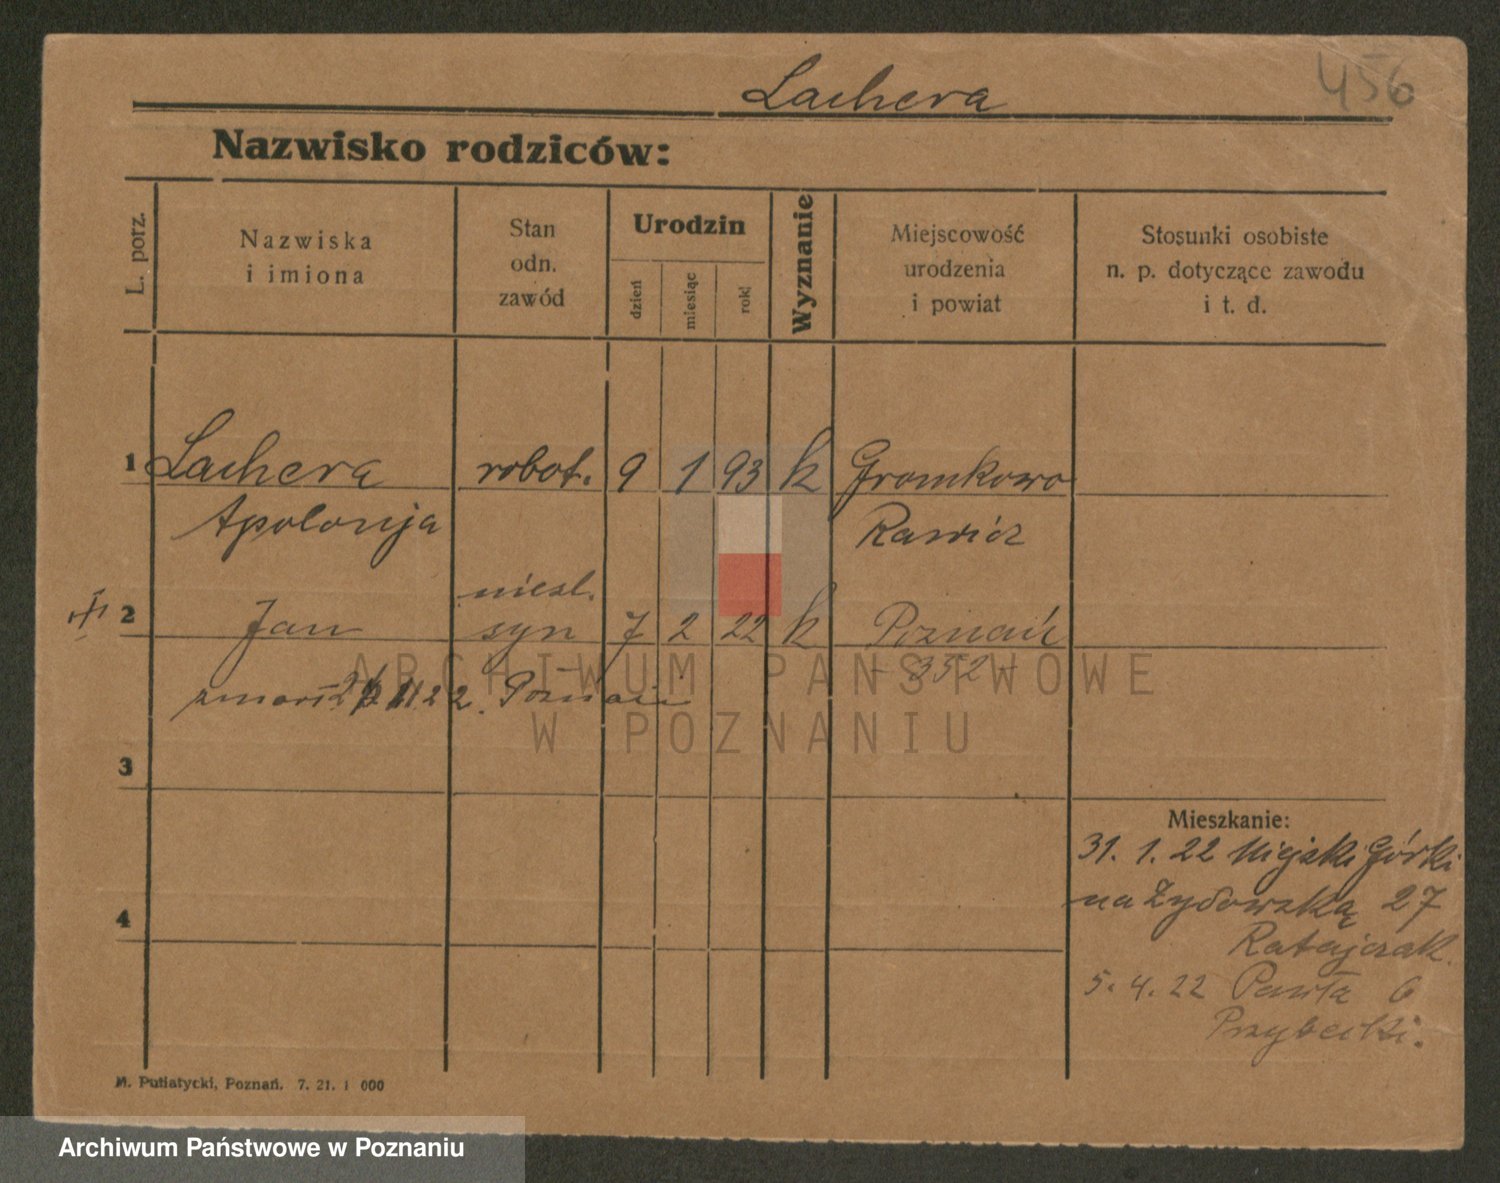 456
Lachera
Nazwisko rodziców:
L. porz.
Nazwiska i imiona
Stan odn. zawód
Urodzin
dzień miesiąc rok
Wyznanie
Miejscowość urodzenia i powiat
Stosunki osobiste n. p. dotyczące zawodu i t. d.
1 Lachera robot. 9 1 93 k Gromkowo
Apolonja Rawicz
nieśl.
2 Jan syn 7 2 22 k Poznań
- 352 -
zmarł 22. Poznań
3
Mieszkanie:
31. 1. 22 Miejski Górki
na Żydowską 27
4
Ratajczak.
5. 4. 22 Pawła 6
Przybecki.
M. Putiatycki, Poznań. 7. 21. 1 000
ARCHIWUM PAŃSTWOWE
W POZNANIU
Archiwum Państwowe w Poznaniu